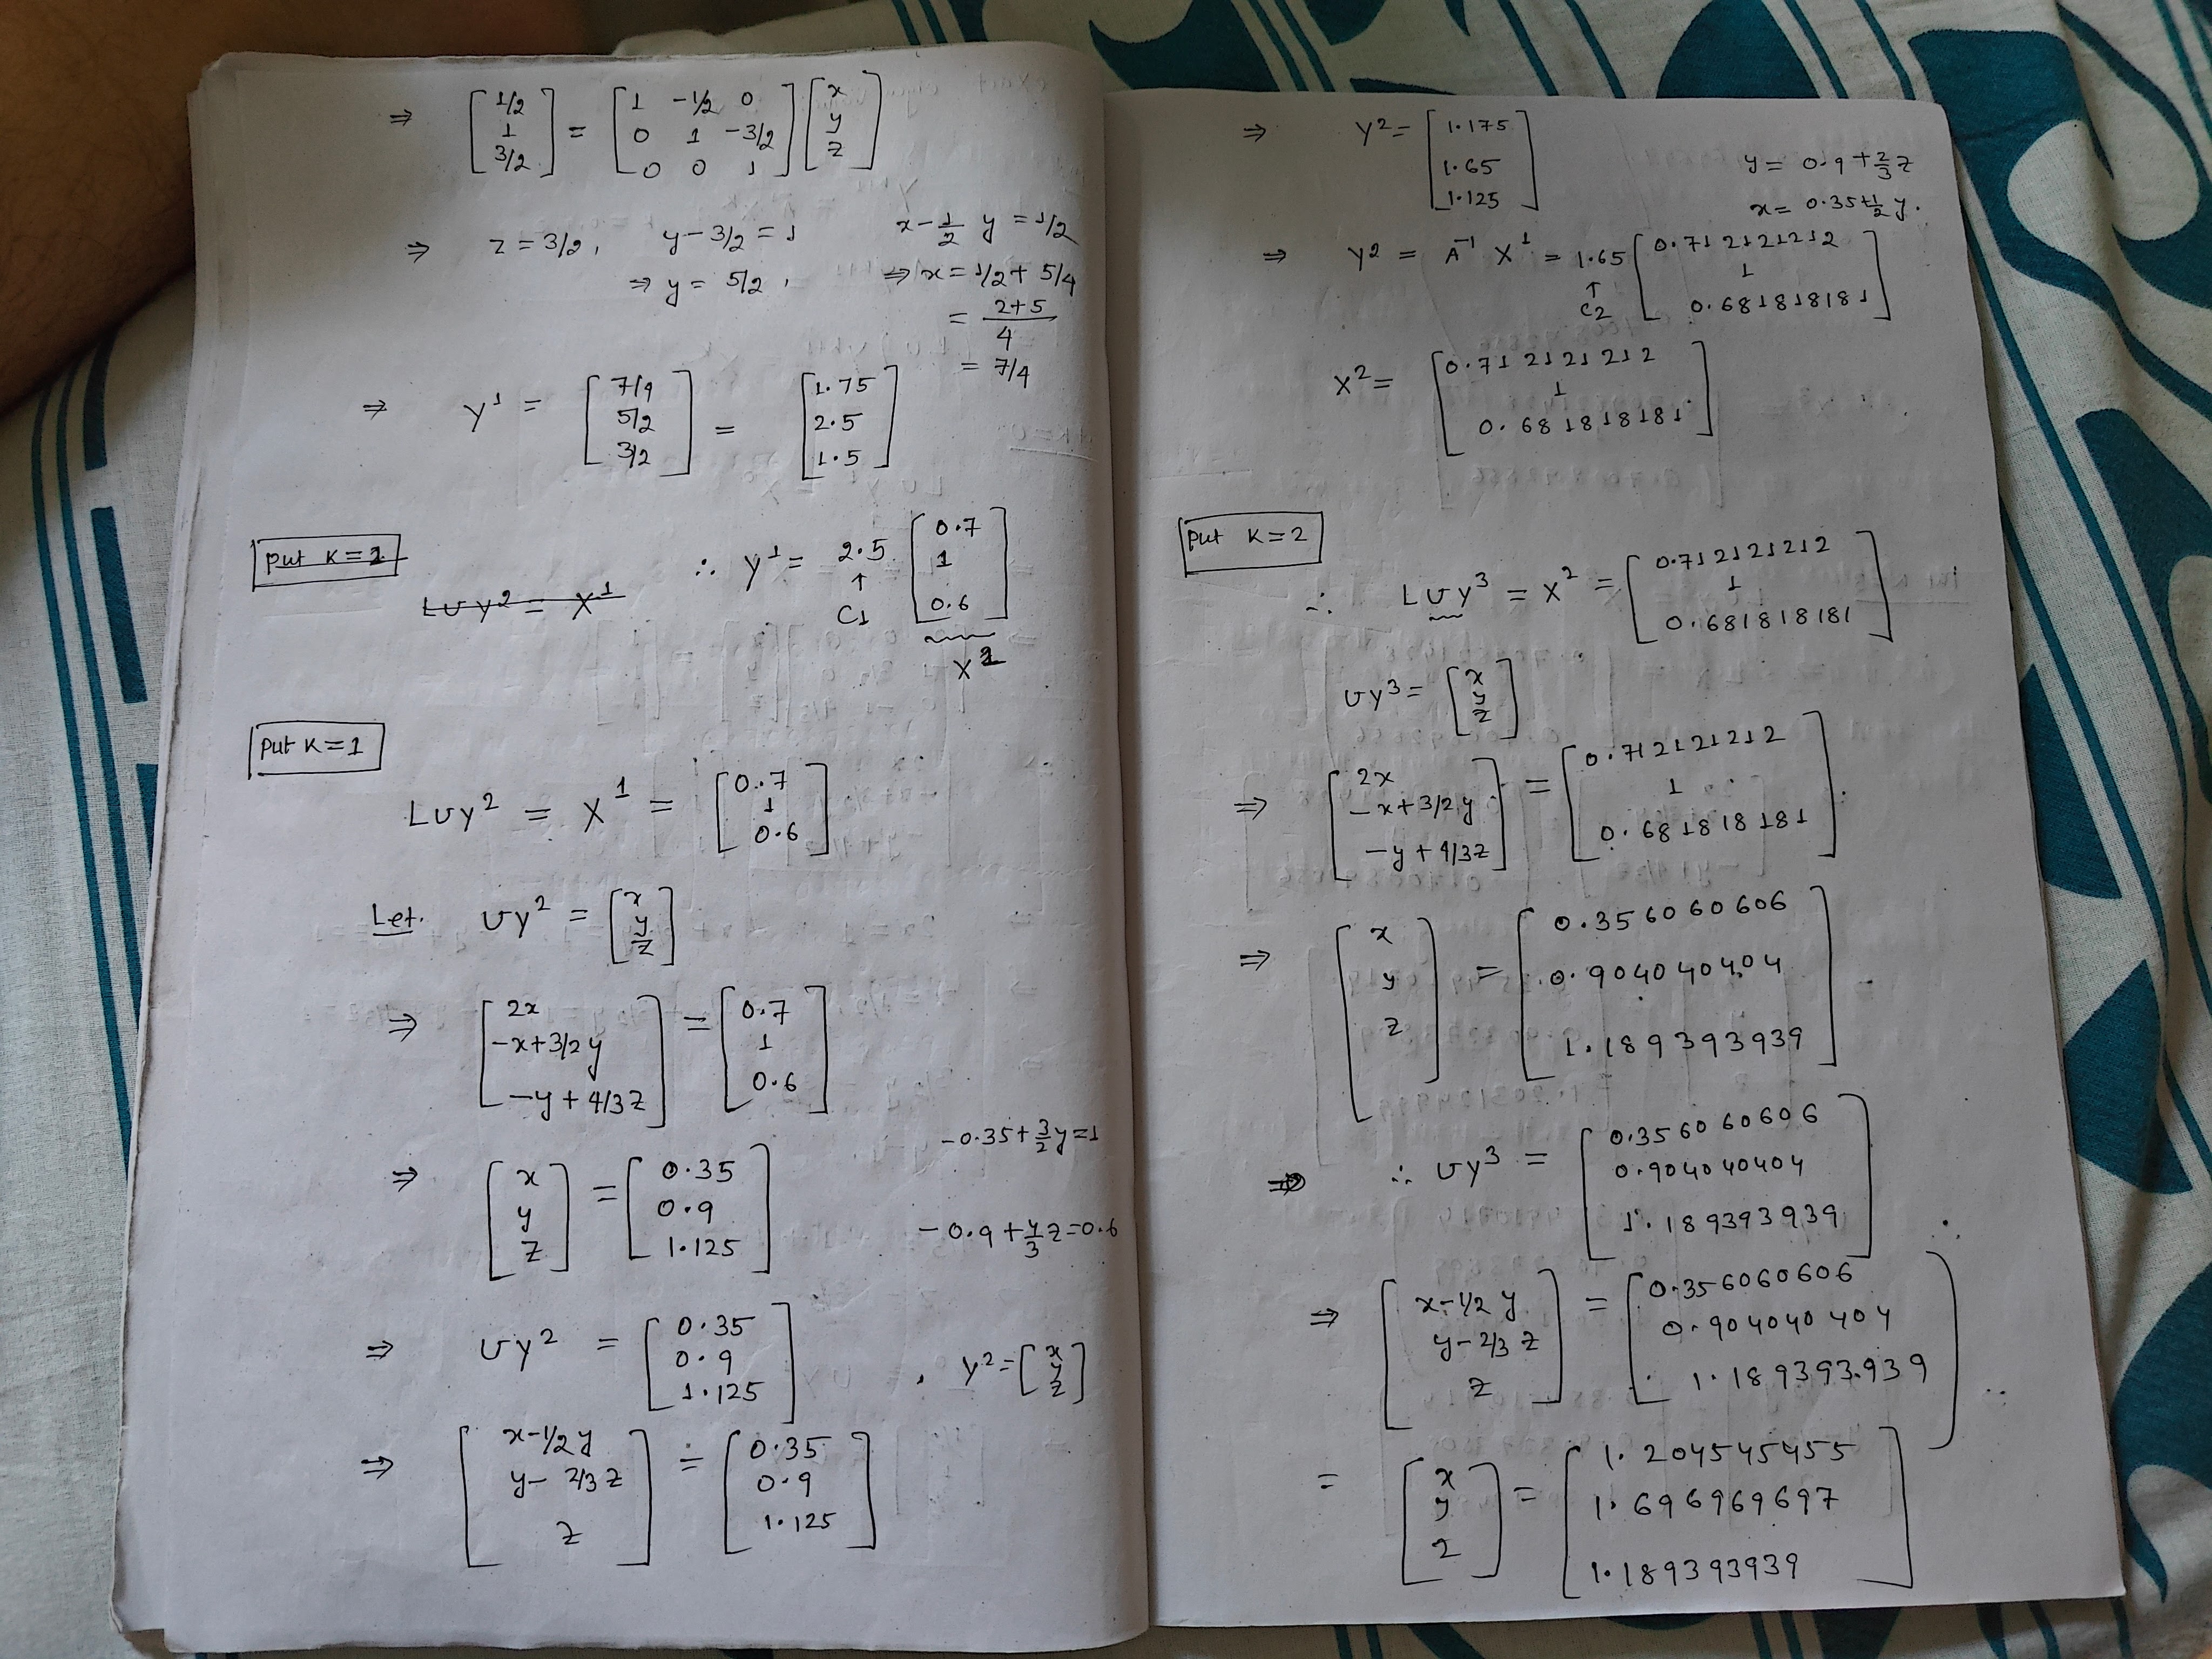 ⇒ [1/2 1 3/2] = [1 -1/2 0
0 1 -3/2
0 0 1] [x y z]
⇒ z = 3/2, y - 3/2 = 1 x - 1/2 y = 1/2
⇒ y = 5/2, ⇒ x = 1/2 + 5/4
= 2+5/4
= 7/4
⇒ y¹ = [7/4 5/2 3/2] = [1.75 2.5 1.5]
Put K=1
LUy² = X¹
∴ y¹ = 2.5 [0.7 1 0.6]
↑
C1
X1
Put K=1
LUy² = X¹ = [0.7 1 0.6]
Let. Uy² = [x y z]
⇒ [2x -x+3/2y -y+4/3z] = [0.7 1 0.6]
-0.35+3/2y=1
⇒ [x y z] = [0.35 0.9 1.125]
-0.9+4/3z=0.6
⇒ Uy² = [0.35 0.9 1.125], Y² = [x y z]
⇒ [x-1/2y y-2/3z z] = [0.35 0.9 1.125]
⇒ Y² = [1.175 1.65 1.125]
y = 0.9+2/3z
x = 0.35+1/2y.
⇒ Y² = A⁻¹ X¹ = 1.65 [0.712121212 1 0.681818181]
↑
C2
X² = [0.712121212 1 0.681818181]
Put K=2
∴ LUy³ = X² = [0.712121212 1 0.681818181]
Uy³ = [x y z]
⇒ [2x -x+3/2y -y+4/3z] = [0.712121212 1 0.681818181]
⇒ [x y z] = [0.356060606 0.904040404 1.189393939]
⇒ ∴ Uy³ = [0.356060606 0.904040404 1.189393939]
⇒ [x-1/2y y-2/3z z] = [0.356060606 0.904040404 1.189393939]
= [x y z] = [1.204545455 1.696969697 1.189393939]